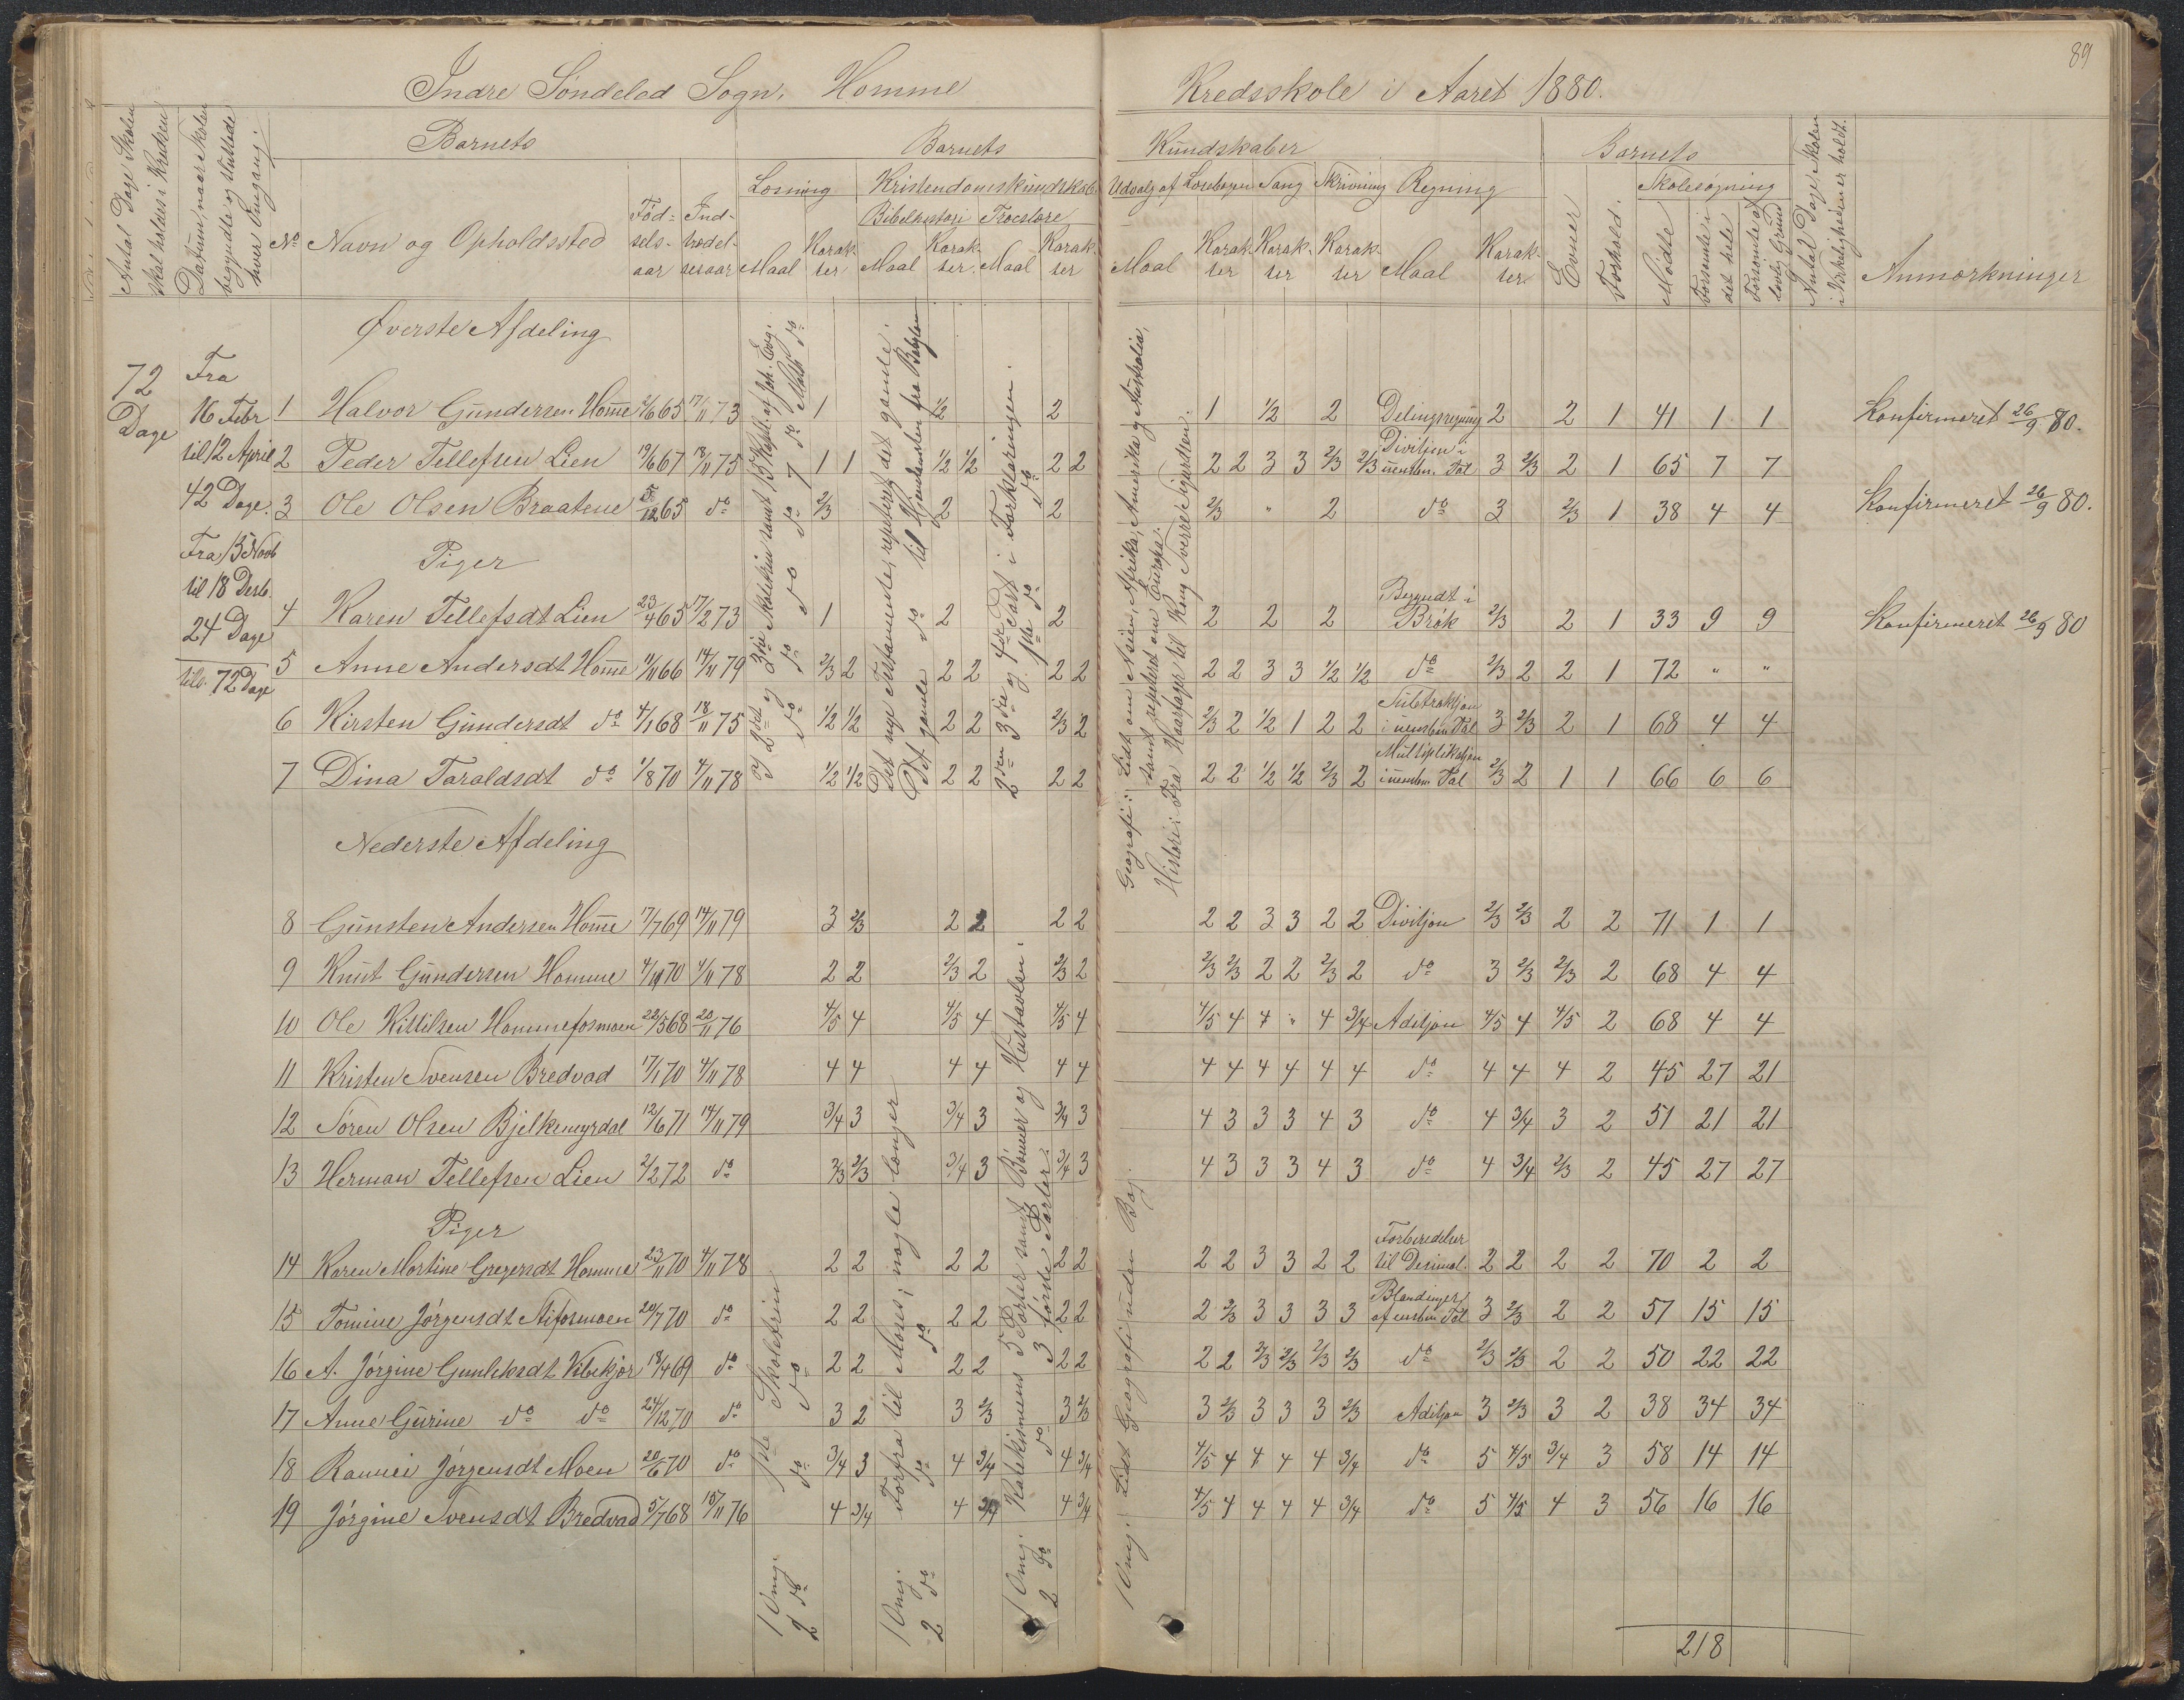 89
Indre Søndeled Sogn. Homme Kredsskole i Aaret 1880.
Antal Dage Skolen skal holdes i Kredsen
Datum, naar Skolen begyndte og sluttede hver Omgang.
Barnets
No Navn og Opholdssted
Fødselsaar
Indtrædelsesaar
Barnets Kundskaber
Læsning
Maal Karakter
Kristendomskundskab
Bibelhistori Troeslære
Maal Karakter Maal Karakter
Udvalg af Læsebogen Sang Skrivning Regning
Maal Karakter Karakter Karakter Maal Karakter
Barnets
Evner Forhold.
Skolesøgning
Mødte
Forsømte i det hele
Forsømte af lovlig Grund
Antal Dage Skolen i Virkeligheden er holdt.
Anmærkninger
72 Dage
Fra 16 Febr til 12 April 42 Dage.
Fra 15 Novb til 18 Desb. 24 Dage
tils. 72 Dage
Øverste Afdeling
1 Halvor Gundersen Homme 2/6 65 17/11 73 1 1/2 2 1 1/2 2 Delingsregning 2 2 1 41 1 1 Konfirmeret 26/9 80.
2 Peder Tellefsen Lien 19/6 67 18/11 75 1 1 1/2 1/2 2 2 2 2 3 3 2/3 2/3 Divisjon i uensben. Tal 3 2/3 2 1 65 7 7
3 Ole Olsen Braatene 5/12 65 do 2/3 2 2 2/3 " 2 do 3 2/3 1 38 4 4 Konfirmeret 26/9 80.
Piger
4 Karen Tellefsdt Lien 23/4 65 17/2 73 1 2 2 2 2 2 Begyndt i Brøk 2/3 2 1 33 9 9 Konfirmeret 26/9 80
5 Anne Andersdt Homme 11/11 66 14/11 79 2/3 2 2 2 2 2 2 2 3 3 1/2 1/2 do 2/3 2 2 1 72 " "
6 Kirsten Gundersdt do 4/1 68 18/11 75 1/2 1/2 2 2 2/3 2 2/3 2 1/2 1 2 2 Subtraksjon i uensben Tal 3 2/3 2 1 68 4 4
7 Dina Taraldsdt do 1/8 70 4/11 78 1/2 1/2 2 2 2 2 2 2 1/2 1/2 2/3 2 Multiplikasjon i uensben Tal 2/3 2 1 1 66 6 6
Det nye Testamente, repeteret det gamle.
Det gamle do til Hjemkomsten fra Babylon
2den 3die og 4de Part i Forklaringen.
1ste do do
Geografi: Lidt om Asien, Afrika, Amerika og Australia,
samt repeteret om Europa.
Histori: Fra Haarfager til Kong Sverre Sigurdsen.
Nederste Afdeling
8 Gunsten Andersen Homme 17/7 69 14/11 79 3 2/3 2 2 2 2 2 2 3 3 2 2 Divisjon 2/3 2/3 2 2 71 1 1
9 Knut Gundersen Homme 4/10 70 4/11 78 2 2 2/3 2 2/3 2 2/3 2/3 2 2 2/3 2 do 3 2/3 2/3 2 68 4 4
10 Ole Kittilsen Hommefosmoen 22/5 68 20/11 76 4/5 4 4/5 4 4/5 4 4/5 4 4 " 4 3/4 Adisjon 4/5 4 4/5 2 68 4 4
11 Kristen Svensen Bredvad 17/1 70 4/11 78 4 4 4 4 4 4 4 4 4 4 4 4 do 4 4 4 2 45 27 21
12 Søren Olsen Bjelkemyrdal 12/6 71 14/11 79 3/4 3 3/4 3 3/4 3 4 3 3 3 4 3 do 4 3/4 3 2 51 21 21
13 Herman Tellefsen Lien 2/2 72 do 2/3 2/3 3/4 3 3/4 3 4 3 3 3 4 3 do 4 3/4 2/3 2 45 27 27
Piger
14 Karen Martine Gregersdt Homme 23/11 70 4/11 78 2 2 2 2 2 2 2 2 3 3 2 2 Forberedelser til Desimal. 2 2 2 2 70 2 2
15 Tomine Jørgensdt 20/7 70 do 2 2 2 2 2 2 2 2/3 3 3 3 3 Blandinger af ensben Tal 3 2/3 2 2 57 15 15
16 A. Jørgine Gunleksdt 18/4 69 do 2 2 2 2 2 2 2 2 2/3 2/3 2/3 2/3 do 2/3 2/3 2 2 50 22 22
17 Anne Gurine do do 24/12 70 do 3 2 3 2/3 3 2/3 3 2/3 3 3 3 2/3 Adisjon 3 2/3 3 2 38 34 34
18 Jørgensdt Moen 20/6 70 do 3/4 3 4 3/4 4 3/4 4/5 4 4 4 4 3/4 do 5 4/5 3/4 3 58 14 14
19 Jørgine Svensdt Bredvad 5/7 68 15/11 76 4 3/4 4 3/4 4 3/4 4/5 4 4 4 4 3/4 do 5 4/5 4 3 56 16 16
1 Omg. 1ste Skoletrin
2 do do do
1 Omg. Forfra til Moses; nogle længer
2 do do do
1 Omg. Katekismens 5 Parter samt Bønner og Hustavlen.
2 do do 3 første Parter.
1 Omg. Lidt Geografi uden Bog.
218